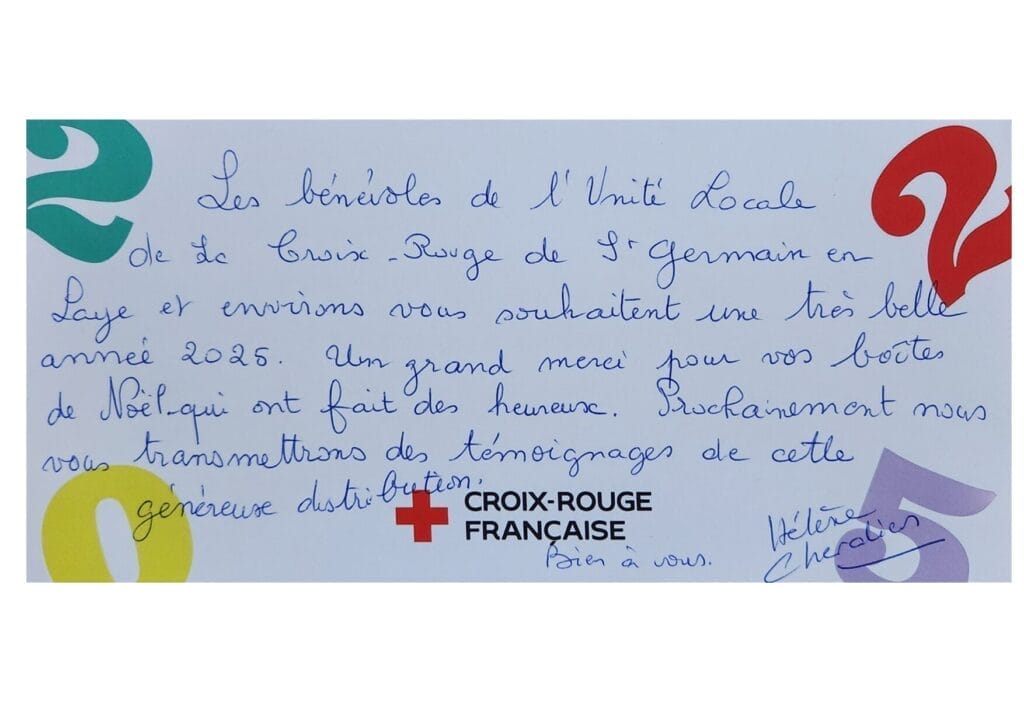 2
2
Les bénévoles de l'Unité Locale
de la Croix-Rouge de St Germain en
Laye et environs vous souhaitent une très belle
année 2025. Un grand merci pour vos boîtes
de Noël qui ont fait des heureux. Prochainement nous
vous transmettrons des témoignages de cette
généreuse distribution.
CROIX-ROUGE
FRANÇAISE
Bien à vous.
Hélène
Chevalier
0
5